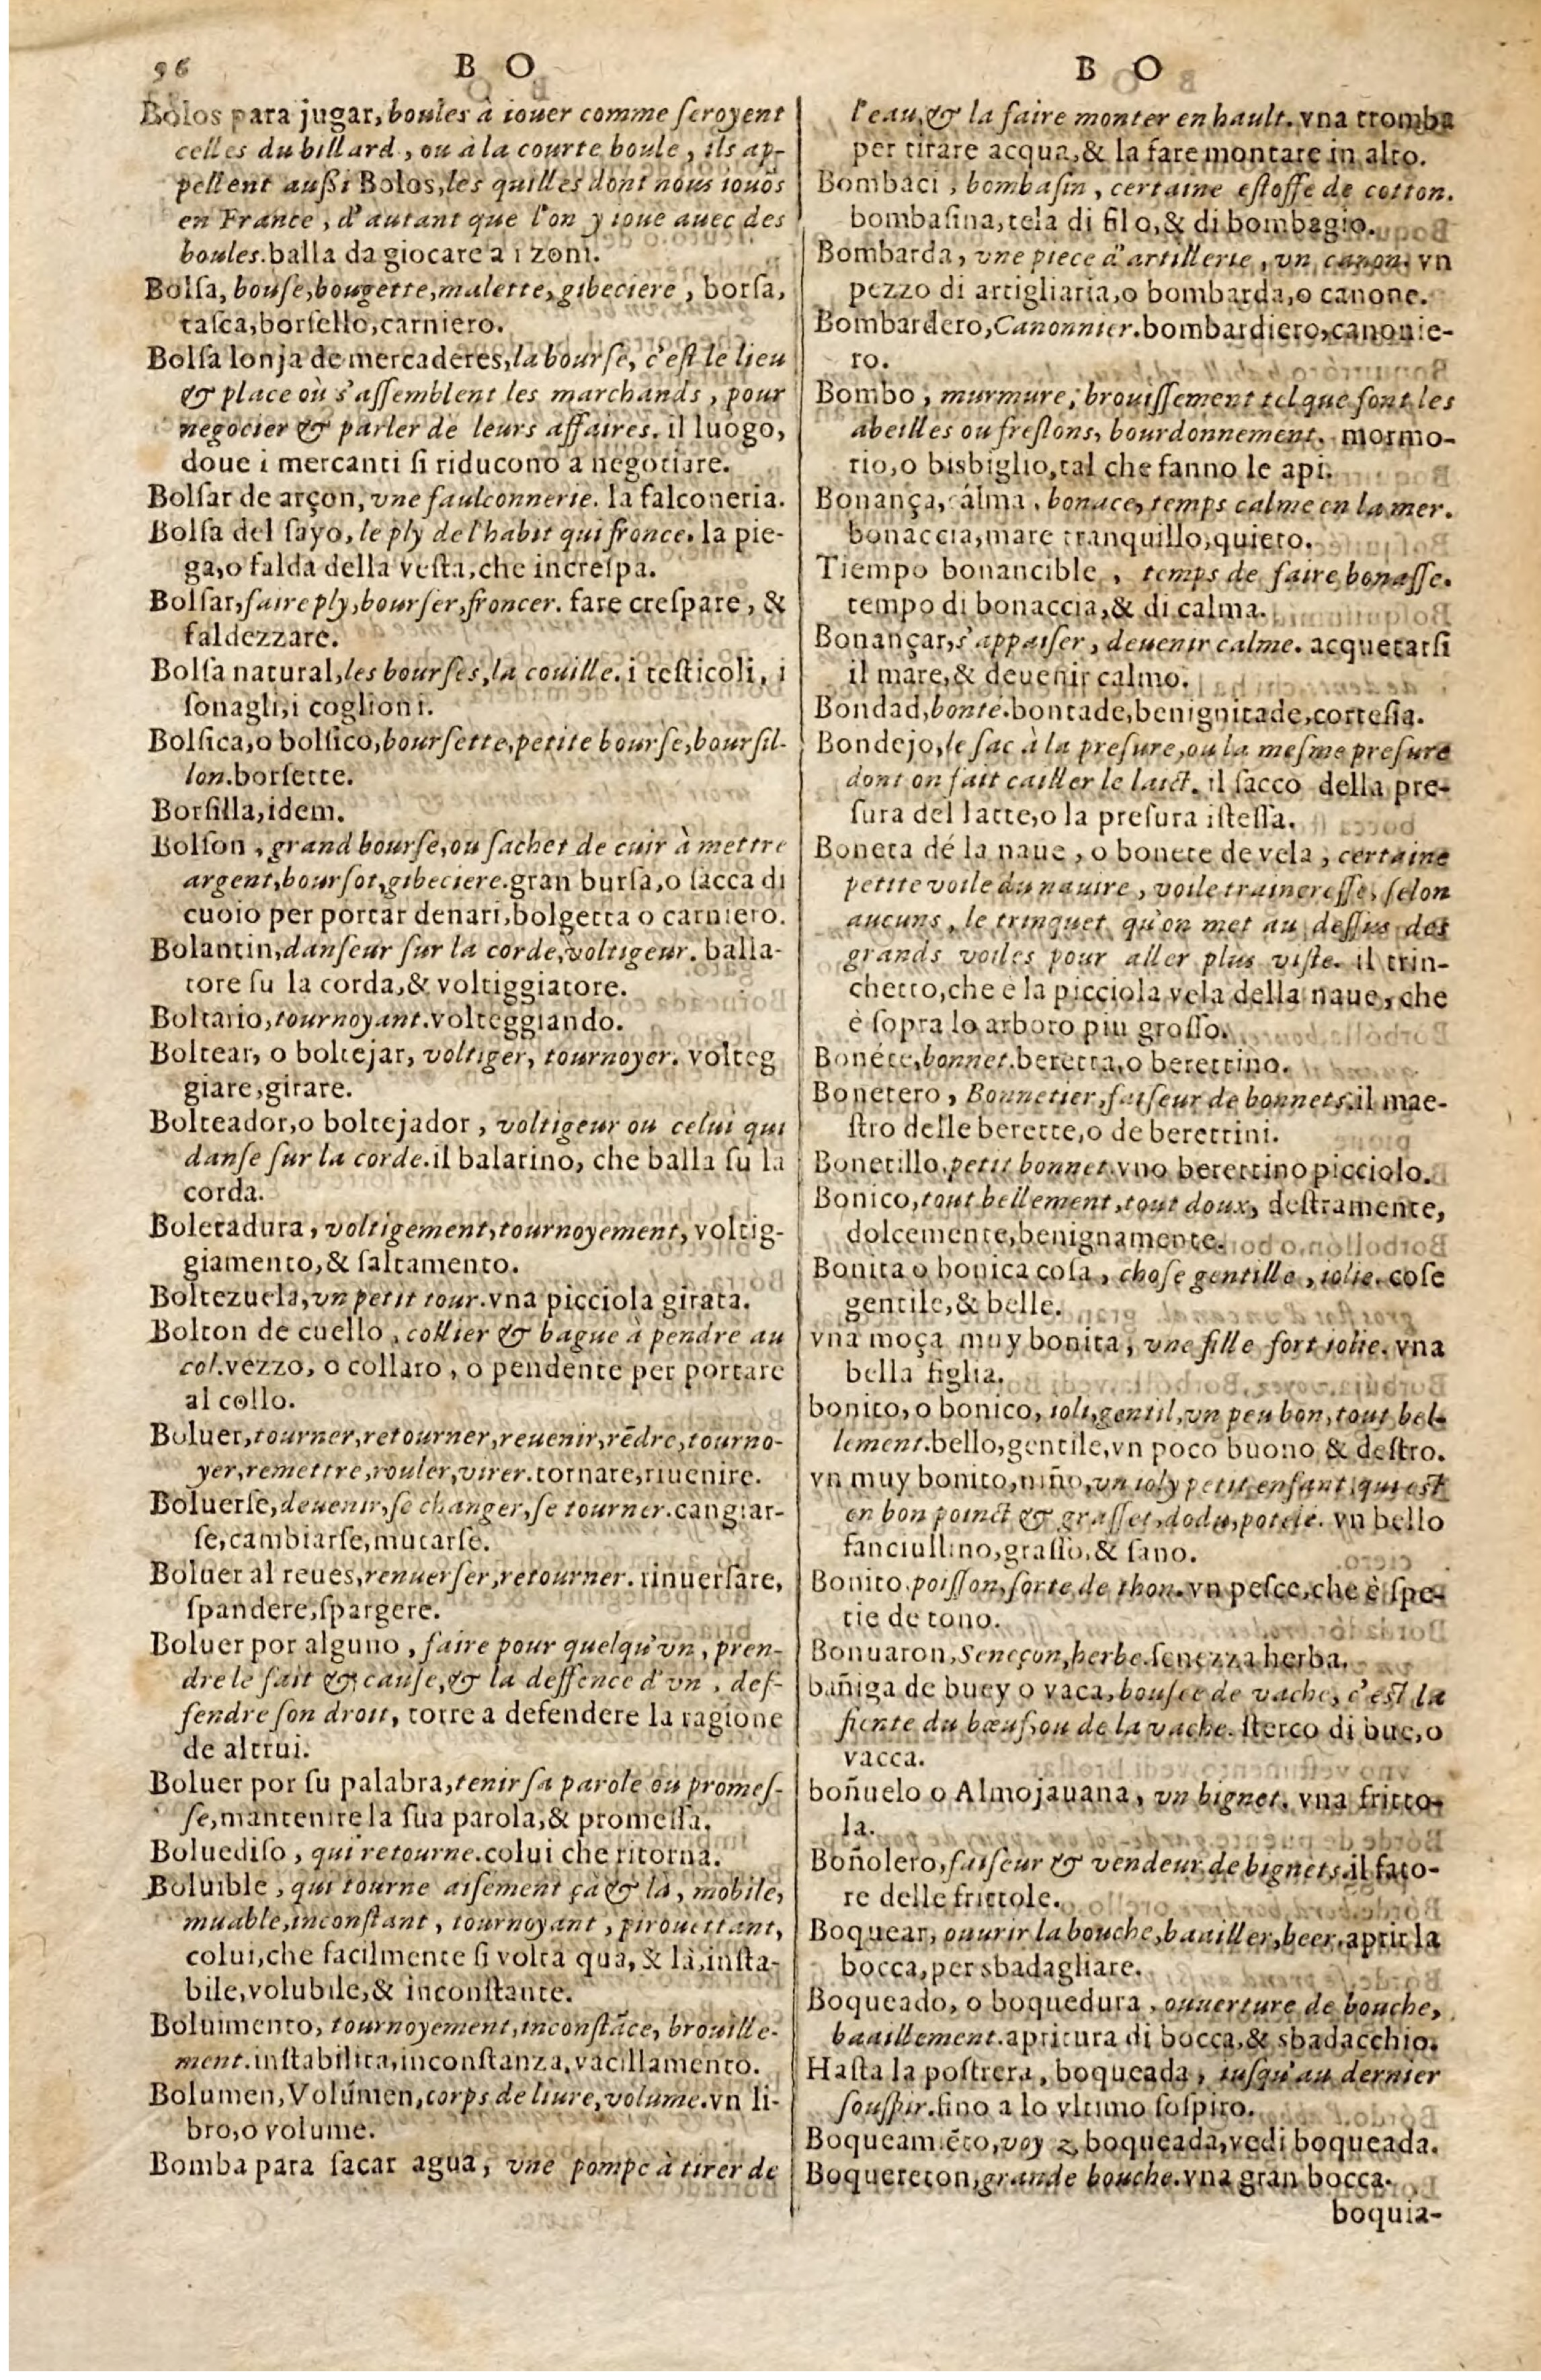 96 B O
Bolos para jugar, boules à iouer comme ſeroyent
celles du billard, ou à la courte boule, ils ap-
pellent außi Bolos, les quilles dont nous iouõs
en France, d'autant que l'on y ioue auec des
boules. balla da giocare a i zoni.
Bolſa, bouſe, bougette, malette, gibeciere, borſa,
taſca, borſello, carniero.
Bolſa lonja de mercaderes, la bourſe, c'eſt le lieu
& place où s'aſſemblent les marchands, pour
negocier & parler de leurs affaires. il luogo,
doue i mercanti ſi riducono a negotiare.
Bolſar de arçon, vne faulconnerie. la falconeria.
Bolſa del ſayo, le ply de l'habit qui fronce. la pie-
ga, o falda della veſta, che increſpa.
Bolſar, faire ply, bourſer, froncer. fare creſpare, &
faldezzare.
Bolſa natural, les bourſes, la couille. i teſticoli, i
ſonagli, i coglioni.
Bolſica, o bolſico, bourſette, petite bourſe, bourſil-
lon. borſette.
Borſilla, idem.
Bolſon, grand bourſe, ou ſachet de cuir à mettre
argent, bourſot, gibeciere. gran burſa, o ſacca di
cuoio per portar denari, bolgetta o carniero.
Bolantin, danſeur ſur la corde, voltigeur. balla-
tore ſu la corda, & voltiggiatore.
Boltario, tournoyant. volteggiando.
Boltear, o boltejar, voltiger, tournoyer. volteg
giare, girare.
Bolteador, o boltejador, voltigeur ou celui qui
danſe ſur la corde. il balarino, che balla ſu la
corda.
Boletadura, voltigement, tournoyement, voltig-
giamento, & ſaltamento.
Boltezuela, vn petit tour. vna picciola girata.
Bolton de cuello, collier & bague à pendre au
col. vezzo, o collaro, o pendente per portare
al collo.
Boluer, tourner, retourner, reuenir, rẽdre, tourno-
yer, remettre, rouler, virer. tornare, riuenire.
Boluerſe, deuenir, ſe changer, ſe tourner. cangiar-
ſe, cambiarſe, mutarſe.
Boluer al reues, renuerſer, retourner. rinuerſare,
ſpandere, ſpargere.
Boluer por alguno, faire pour quelqu'vn, pren-
dre le fait & cauſe, & la deffence d'vn, def-
fendre ſon droit, torre a defendere la ragione
de altrui.
Boluer por ſu palabra, tenir ſa parole ou promeſ-
ſe, mantenire la ſua parola, & promeſſa.
Boluediſo, qui retourne. colui che ritorna.
Boluible, qui tourne aiſement çà & là, mobile,
muable, inconſtant, tournoyant, pirouettant,
colui, che facilmente ſi volta qua, & là, inſta-
bile, volubile, & inconſtante.
Boluimento, tournoyement, inconſtãce, brouille-
ment. inſtabilita, inconſtanza, vacillamento.
Bolumen, Volúmen, corps de liure, volume. vn li-
bro, o volume.
Bomba para ſacar agua, vne pompe à tirer de
B O
l'eau, & la faire monter en hault. vna tromba
per tirare acqua, & la fare montare in alto.
Bombaci, bombaſin, certaine eſtoffe de cotton.
bombaſina, tela di filo, & di bombagio.
Bombarda, vne piece d'artillerie, vn canon. vn
pezzo di artigliaria, o bombarda, o canone.
Bombardero, Canonnier. bombardiero, canonie-
ro.
Bombo, murmure, brouiſſement tel que font les
abeilles ou freſlons, bourdonnement. mormo-
rio, o bisbiglio, tal che fanno le api.
Bonança, cálma, bonace, temps calme en la mer.
bonaccia, mare tranquillo, quieto.
Tiempo bonancible, temps de faire bonaſſe.
tempo di bonaccia, & di calma.
Bonançar, s'appaiſer, deuenir calme. acquetarſi
il mare, & deuenir calmo.
Bondad, bonté. bontade, benignitade, corteſia.
Bondejo, le ſac à la preſure, ou la meſme preſure
dont on fait cailler le laict. il ſacco della pre-
ſura del latte, o la preſura iſteſſa.
Boneta dé la naue, o bonete de vela, certaine
petite voile du nauire, voile traineresſe, ſelon
aucuns, le trinquet qu'on met au deſſus des
grands voiles pour aller plus viſte. il trin-
chetto, che e la picciola vela della naue, che
è ſopra lo arboro piu groſſo.
Bonéte, bonnet. beretta, o berettino.
Bonetero, Bonnetier, faiſeur de bonnets. il mae-
ſtro delle berette, o de berettini.
Bonetillo, petit bonnet. vno berettino picciolo.
Bonico, tout bellement, tout doux, deſtramente,
dolcemente, benignamente.
Bonita o bonica coſa, choſe gentille, iolie. coſe
gentile, & belle.
vna moça muy bonita, vne fille fort iolie. vna
bella figlia.
bonito, o bonico, ioli, gentil, vn peu bon, tout bel-
lement. bello, gentile, vn poco buono & deſtro.
vn muy bonito, niño, vn ioly petit enfant, qui est
en bon poinct & graſſet, dodu, potelé. vn bello
fanciullino, graſſo, & ſano.
Bonito poiſſon, ſorte de thon. vn peſce, che è ſpe-
tie de tono.
Bonuaron, Seneçon, herbe. ſenezza herba.
bañiga de buey o vaca, bouſee de vache, c'est la
fiente du bœuf, ou de la vache. ſterco di bue, o
vacca.
boñuelo o Almojauana, vn bignet. vna fritto-
la.
Boñolero, faiſeur & vendeur de bignets. il fato-
re delle frittole.
Boquear, ouurir la bouche, baailler, beer. aprir la
bocca, per sbadagliare.
Boqueado, o boquedura, ouuerture de bouche,
baaillement. apritura di bocca, & sbadacchio.
Haſta la poſtrera, boqueada, iuſqu'au dernier
ſouſpir. ſino a lo vltimo ſoſpiro.
Boqueamiẽto, voy z, boqueada, vedi boqueada.
Boquereton, grande bouche. vna gran bocca.
boquia-